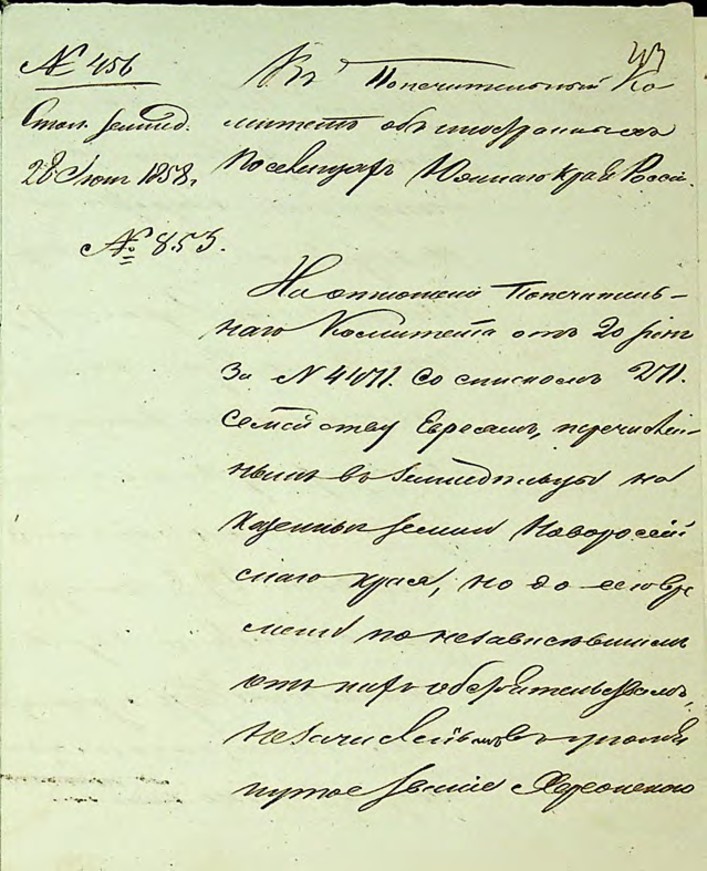 43
№ 456
Стол. землед.
28 Июня 1858.
№ 853.
Въ Попечительный Ко-
митетъ объ иностранныхъ
Поселенцахъ Южнаго Края Россіи.
На отношеніе Попечитель-
наго Комитета отъ 20 Іюня
за № 4471. со спискомъ 271.
семейству Евреямъ, перечислен-
нымъ въ земледѣльцы на
казенныя земли Новороссій
скаго края, но до сего вре
мени по независѣвшимъ
отъ нихъ обстоятельствамъ,
незачисленымъ въ упомя
нутое званіе Херсонскою